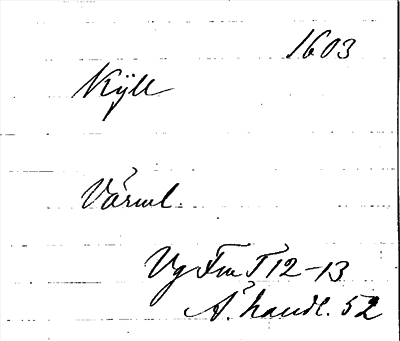 1603
Kÿll
Värml.
Vg Fm T 12-13
Å. handl. 52